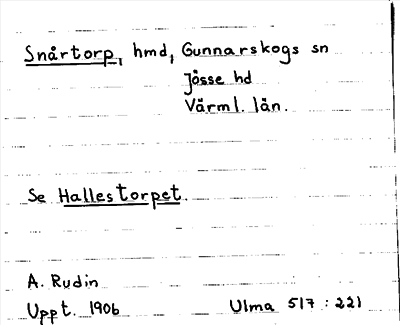 Snårtorp, hmd, Gunnarskogs sn
Jösse hd
Värml. län.
Se Hallestorpet.
A. Rudin
Uppt. 1906
Ulma 517 : 221